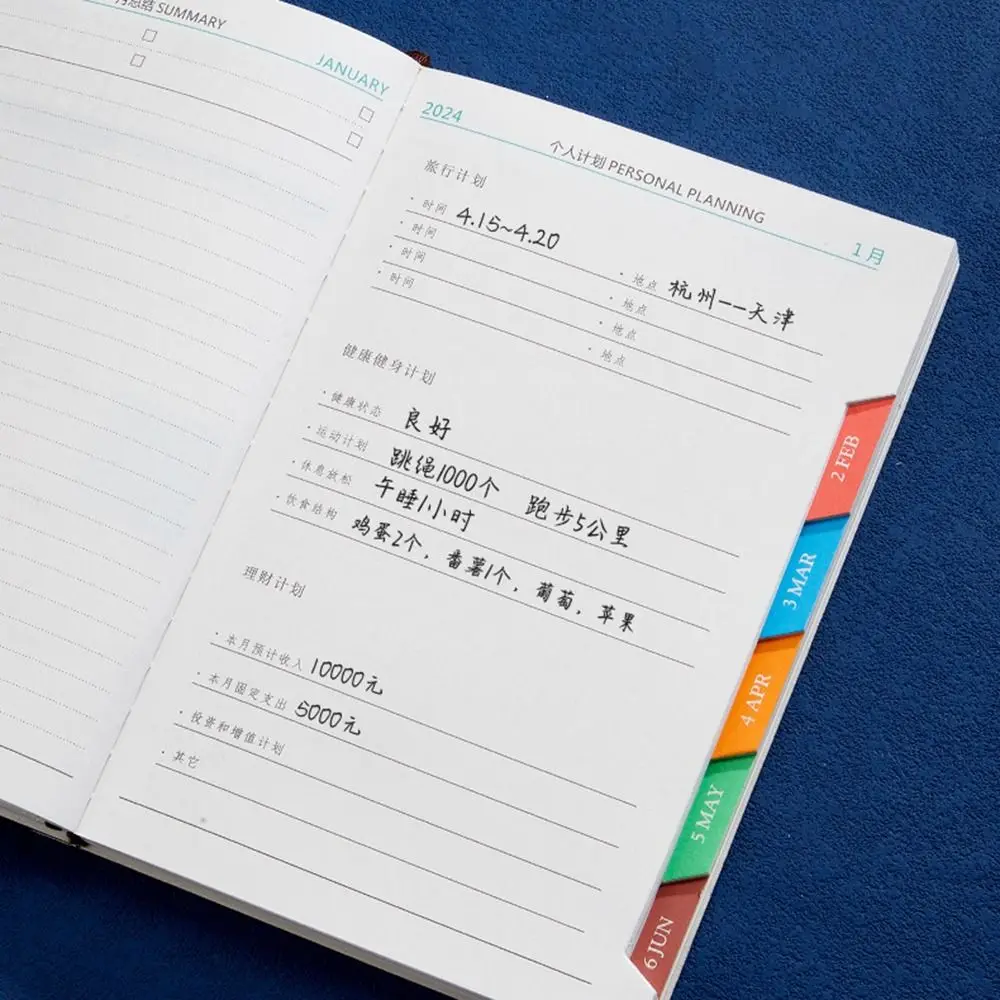 月总结 SUMMARY
JANUARY
2024
个人计划 PERSONAL PLANNING
1 月
旅行计划
· 时间 4.15~4.20 · 地点 杭州--天津
· 时间 · 地点
· 时间 · 地点
· 时间 · 地点
健康健身计划
· 健康状态 良好
· 运动计划 跳绳1000个 跑步5公里
· 休息放松 午睡1小时
· 饮食结构 鸡蛋2个，番薯1个，葡萄，苹果
理财计划
· 本月预计收入 10000元
· 本月固定支出 5000元
· 投资和增值计划
· 其它
2 FEB
3 MAR
4 APR
5 MAY
6 JUN